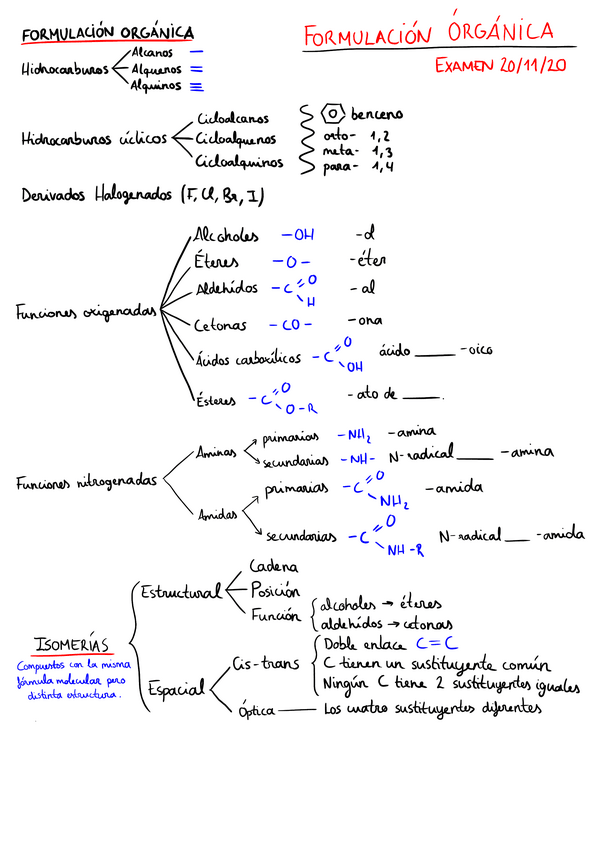 FORMULACIÓN ORGÁNICA
FORMULACIÓN ÓRGÁNICA
EXAMEN 20/11/20
Hidrocarburos
Alcanos —
Alquenos =
Alquinos ≡
Hidrocarburos cíclicos
Cicloalcanos
Cicloalquenos
Cicloalquinos
benceno
orto- 1,2
meta- 1,3
para- 1,4
Derivados Halogenados (F, Cl, Br, I)
Funciones oxigenadas
Alcoholes -OH -ol
Éteres -O- -éter
Aldehídos -C=O H -al
Cetonas -CO- -ona
Ácidos carboxílicos -C=O OH ácido ____ -oico
Ésteres -C=O O-R -ato de ____.
Funciones nitrogenadas
Aminas
primarias -NH₂ -amina
secundarias -NH- N-radical ____ -amina
Amidas
primarias -C=O NH₂ -amida
secundarias -C=O NH-R N-radical ___ -amida
ISOMERÍAS
Compuestos con la misma
fórmula molecular pero
distinta estructura.
Estructural
Cadena
Posición
Función
alcoholes → éteres
aldehídos → cetonas
Espacial
Cis-trans
Doble enlace C=C
C tienen un sustituyente común
Ningún C tiene 2 sustituyentes iguales
Óptica — Los cuatro sustituyentes diferentes